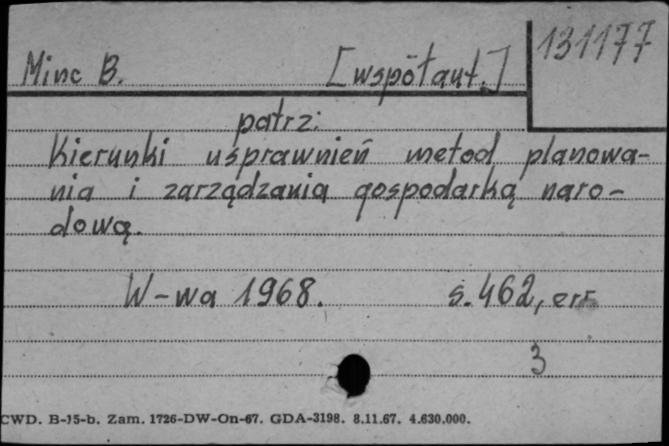 Minc B. [współaut.] 131177
patrz:
Kierunki usprawnień metod planowa-
nia i zarządzania gospodarką naro-
dową.
W-wa 1968. s. 462, err
3
CWD. B-15-b. Zam. 1726-DW-On-67. GDA-3198. 8.11.67. 4.630.000.